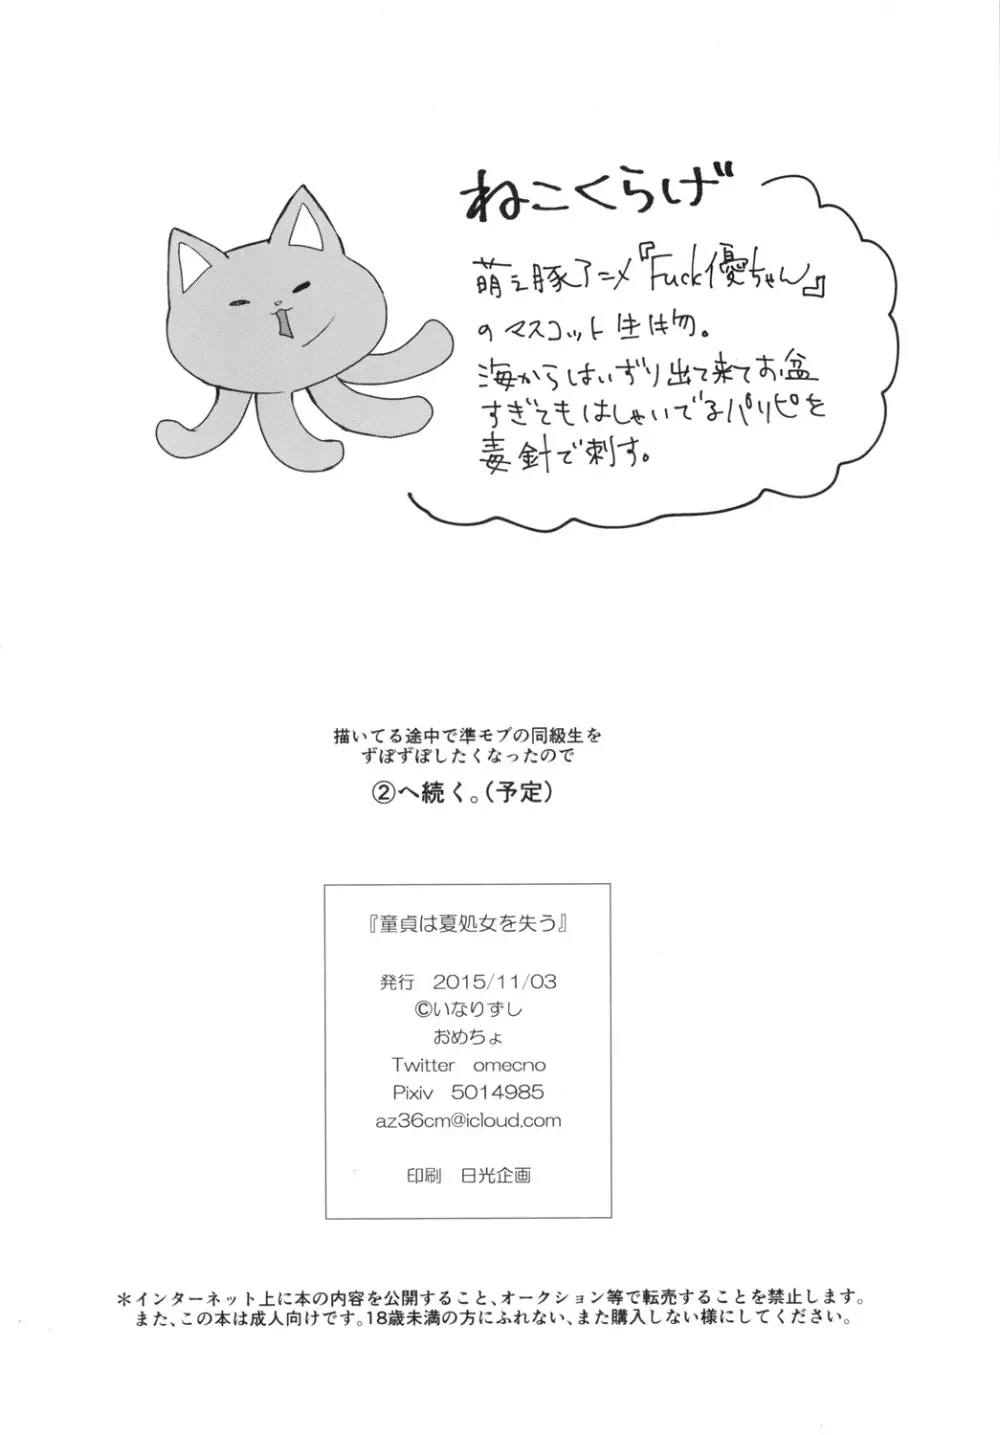 ねこくらげ
萌え豚アニメ『Fuck優ちゃん』
のマスコット生物。
海からはいずり出て来てお盆
すぎてもはしゃいでるパリピを
毒針で刺す。
描いてる途中で準モブの同級生を
ずぽずぽしたくなったので
②へ続く。(予定)
『童貞は夏処女を失う』
発行 2015/11/03
©いなりずし
おめちょ
Twitter omecno
Pixiv 5014985
az36cm@icloud.com
印刷 日光企画
＊インターネット上に本の内容を公開すること、オークション等で転売することを禁止します。
また、この本は成人向けです。18歳未満の方にふれない、また購入しない様にしてください。